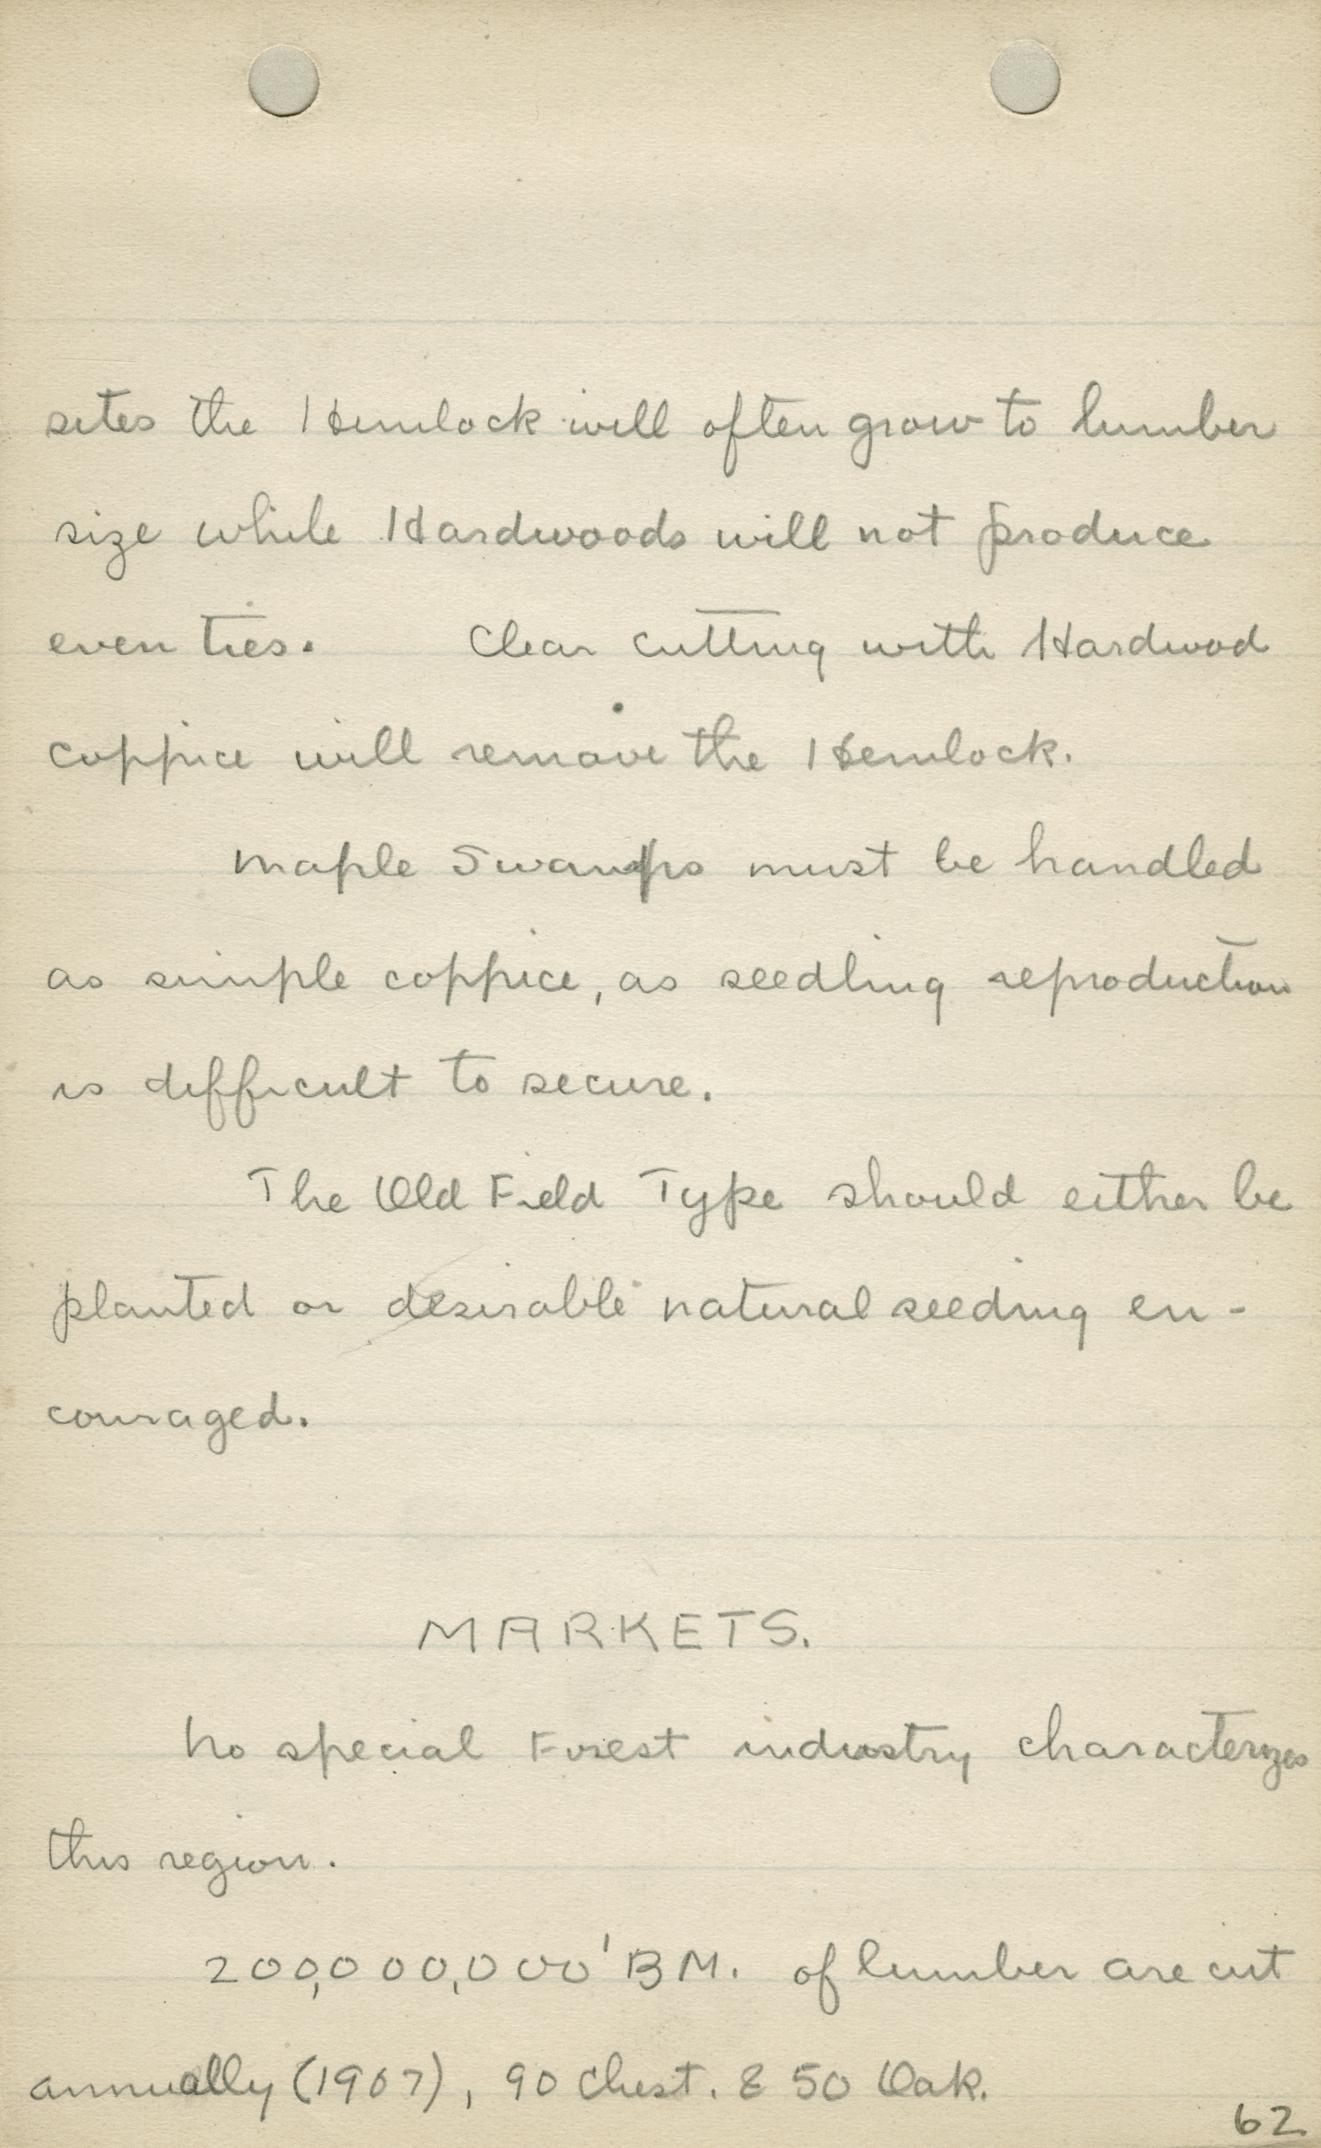 sites the Hemlock will often grow to lumber
size while Hardwoods will not produce
even ties. Clear cutting with Hardwood
coppice will remove the Hemlock.
Maple Swamps must be handled
as simple coppice, as seedling reproduction
is difficult to secure.
The Old Field Type should either be
planted or desirable natural seeding en-
couraged.
MARKETS.
No special Forest industry characterizes
this region.
200,000,000' BM. of lumber are cut
annually (1907), 90 Chest. & 50 Oak.
62